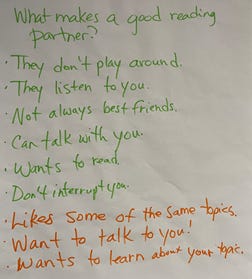 What makes a good reading
partner?
· They don't play around.
· They listen to you.
· Not always best friends.
· Can talk with you.
· Wants to read.
· Don't interrupt you.
· Likes some of the same topics.
· Want to talk to you!
· Wants to learn about your topic.